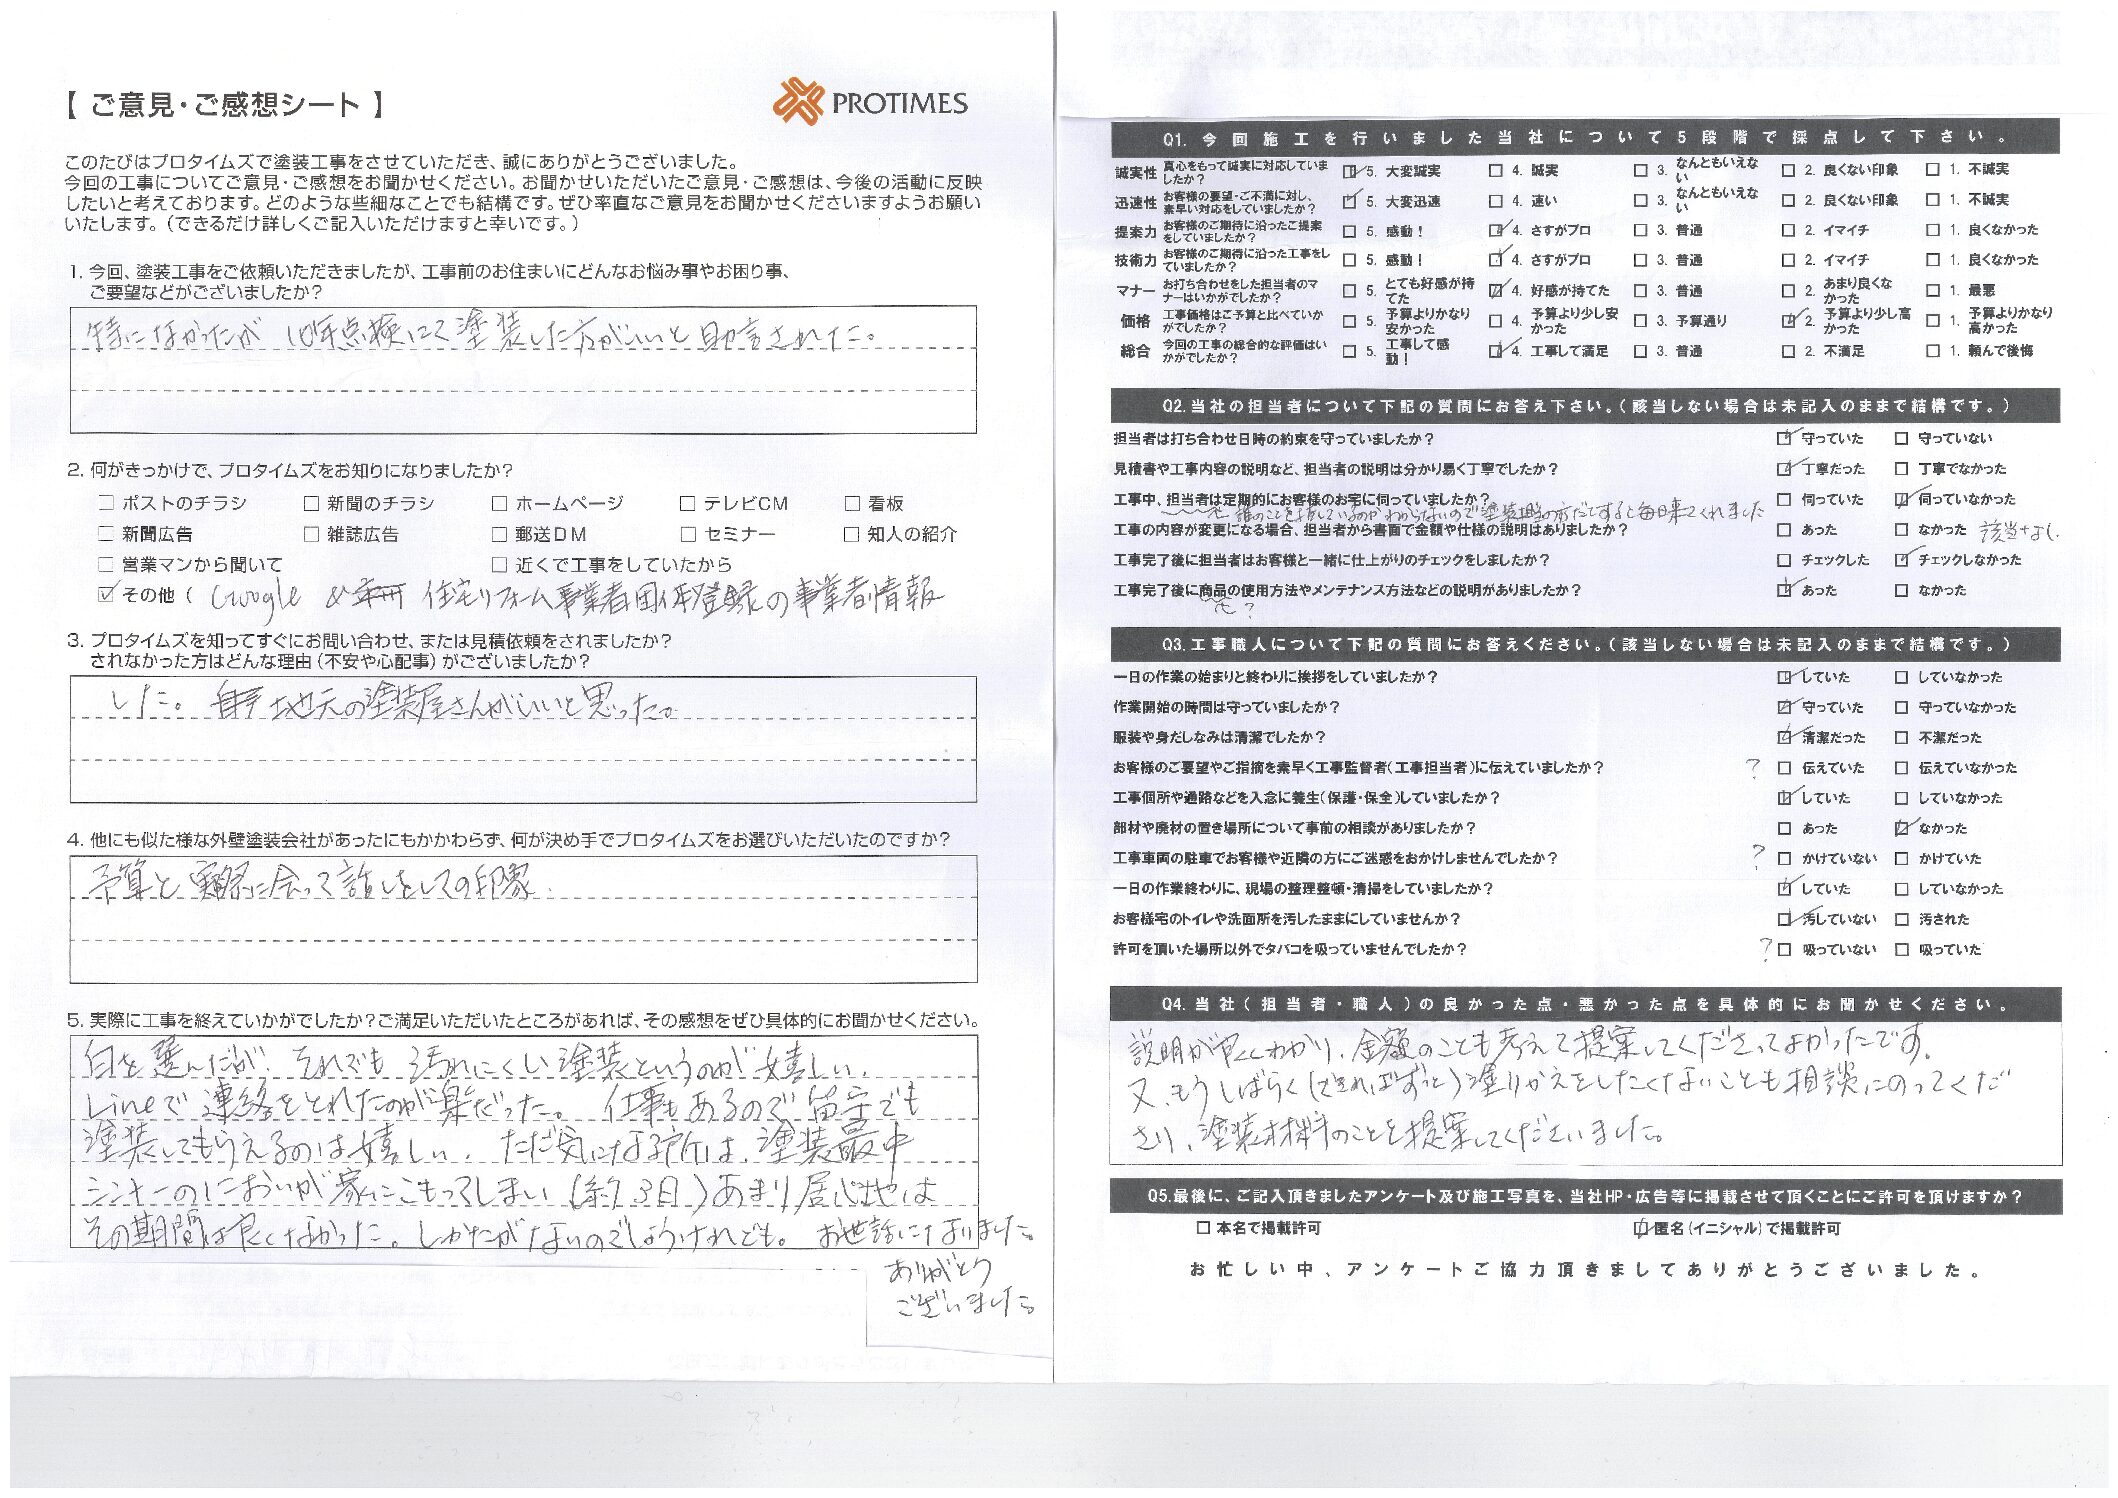 【 ご意見・ご感想シート 】
PROTIMES
このたびはプロタイムズで塗装工事をさせていただき、誠にありがとうございました。
今回の工事についてご意見・ご感想をお聞かせください。お聞かせいただいたご意見・ご感想は、今後の活動に反映
したいと考えております。どのような些細なことでも結構です。ぜひ率直なご意見をお聞かせくださいますようお願い
いたします。（できるだけ詳しくご記入いただけますと幸いです。）
1. 今回、塗装工事をご依頼いただきましたが、工事前のお住まいにどんなお悩み事やお困り事、
ご要望などがございましたか？
特になかったが 10年点検にて塗装した方がいいと助言された。
2. 何がきっかけで、プロタイムズをお知りになりましたか？
□ ポストのチラシ □ 新聞のチラシ □ ホームページ □ テレビCM □ 看板
□ 新聞広告 □ 雑誌広告 □ 郵送DM □ セミナー □ 知人の紹介
□ 営業マンから聞いて □ 近くで工事をしていたから
☑ その他（ Google & 住宅リフォーム事業者団体登録の事業者情報
3. プロタイムズを知ってすぐにお問い合わせ、または見積依頼をされましたか？
されなかった方はどんな理由（不安や心配事）がございましたか？
した。地元の塗装屋さんがいいと思った。
4. 他にも似た様な外壁塗装会社があったにもかかわらず、何が決め手でプロタイムズをお選びいただいたのですか？
予算と実際に会って話しをしての印象.
5. 実際に工事を終えていかがでしたか？ご満足いただいたところがあれば、その感想をぜひ具体的にお聞かせください。
白を選んだが、それでも汚れにくい塗装というのが嬉しい.
Lineで連絡をとれたのが楽だった。仕事もあるので留守でも
塗装してもらえるのは嬉しい. ただ気になる所は、塗装最中
シンナーのにおいが家にこもってしまい（約3日）あまり居心地は
その期間は良くなかった。しかたがないのでしょうけれども。お世話になりました。
ありがとう
ございました。
Q1.今回施工を行いました当社について5段階で採点して下さい。
誠実性 真心をもって誠実に対応していましたか？ ☑ 5. 大変誠実 □ 4. 誠実 □ 3. なんともいえない □ 2. 良くない印象 □ 1. 不誠実
迅速性 お客様の要望・ご不満に対し、素早い対応をしていましたか？ ☑ 5. 大変迅速 □ 4. 速い □ 3. なんともいえない □ 2. 良くない印象 □ 1. 不誠実
提案力 お客様のご期待に沿ったご提案をしていましたか？ □ 5. 感動！ ☑ 4. さすがプロ □ 3. 普通 □ 2. イマイチ □ 1. 良くなかった
技術力 お客様のご期待に沿った工事をしていましたか？ □ 5. 感動！ ☑ 4. さすがプロ □ 3. 普通 □ 2. イマイチ □ 1. 良くなかった
マナー お打ち合わせをした担当者のマナーはいかがでしたか？ □ 5. とても好感が持てた ☑ 4. 好感が持てた □ 3. 普通 □ 2. あまり良くなかった □ 1. 最悪
価格 工事価格はご予算と比べていかがでしたか？ □ 5. 予算よりかなり安かった □ 4. 予算より少し安かった □ 3. 予算通り ☑ 2. 予算より少し高かった □ 1. 予算よりかなり高かった
総合 今回の工事の総合的な評価はいかがでしたか？ □ 5. 工事して感動！ ☑ 4. 工事して満足 □ 3. 普通 □ 2. 不満足 □ 1. 頼んで後悔
Q2.当社の担当者について下記の質問にお答え下さい。（該当しない場合は未記入のままで結構です。）
担当者は打ち合わせ日時の約束を守っていましたか？ ☑ 守っていた □ 守っていない
見積書や工事内容の説明など、担当者の説明は分かり易く丁寧でしたか？ ☑ 丁寧だった □ 丁寧でなかった
工事中、担当者は定期的にお客様のお宅に伺っていましたか？ □ 伺っていた ☑ 伺っていなかった
誰のことを指しているのかわからないので塗装担当の方だとすると毎日来てくれました
工事の内容が変更になる場合、担当者から書面で金額や仕様の説明はありましたか？ □ あった □ なかった 該当なし.
工事完了後に担当者はお客様と一緒に仕上がりのチェックをしましたか？ □ チェックした ☑ チェックしなかった
工事完了後に商品の使用方法やメンテナンス方法などの説明がありましたか？ ☑ あった □ なかった
?
Q3.工事職人について下記の質問にお答えください。（該当しない場合は未記入のままで結構です。）
一日の作業の始まりと終わりに挨拶をしていましたか？ ☑ していた □ していなかった
作業開始の時間は守っていましたか？ ☑ 守っていた □ 守っていなかった
服装や身だしなみは清潔でしたか？ ☑ 清潔だった □ 不潔だった
お客様のご要望やご指摘を素早く工事監督者（工事担当者）に伝えていましたか？ ? □ 伝えていた □ 伝えていなかった
工事個所や通路などを入念に養生（保護・保全）していましたか？ ☑ していた □ していなかった
部材や廃材の置き場所について事前の相談がありましたか？ □ あった ☑ なかった
工事車両の駐車でお客様や近隣の方にご迷惑をおかけしませんでしたか？ ? □ かけていない □ かけていた
一日の作業終わりに、現場の整理整頓・清掃をしていましたか？ ☑ していた □ していなかった
お客様宅のトイレや洗面所を汚したままにしていませんか？ ☑ 汚していない □ 汚された
許可を頂いた場所以外でタバコを吸っていませんでしたか？ ? □ 吸っていない □ 吸っていた
Q4.当社（担当者・職人）の良かった点・悪かった点を具体的にお聞かせください。
説明が良くわかり、金額のことも考えて提案してくださってよかったです.
又、もうしばらく（できればずっと）塗りかえをしたくないことも相談にのってくだ
さり、塗装材料のことを提案してくださいました。
Q5.最後に、ご記入頂きましたアンケート及び施工写真を、当社HP・広告等に掲載させて頂くことにご許可を頂けますか？
□ 本名で掲載許可 ☑ 匿名（イニシャル）で掲載許可
お忙しい中、アンケートご協力頂きましてありがとうございました。